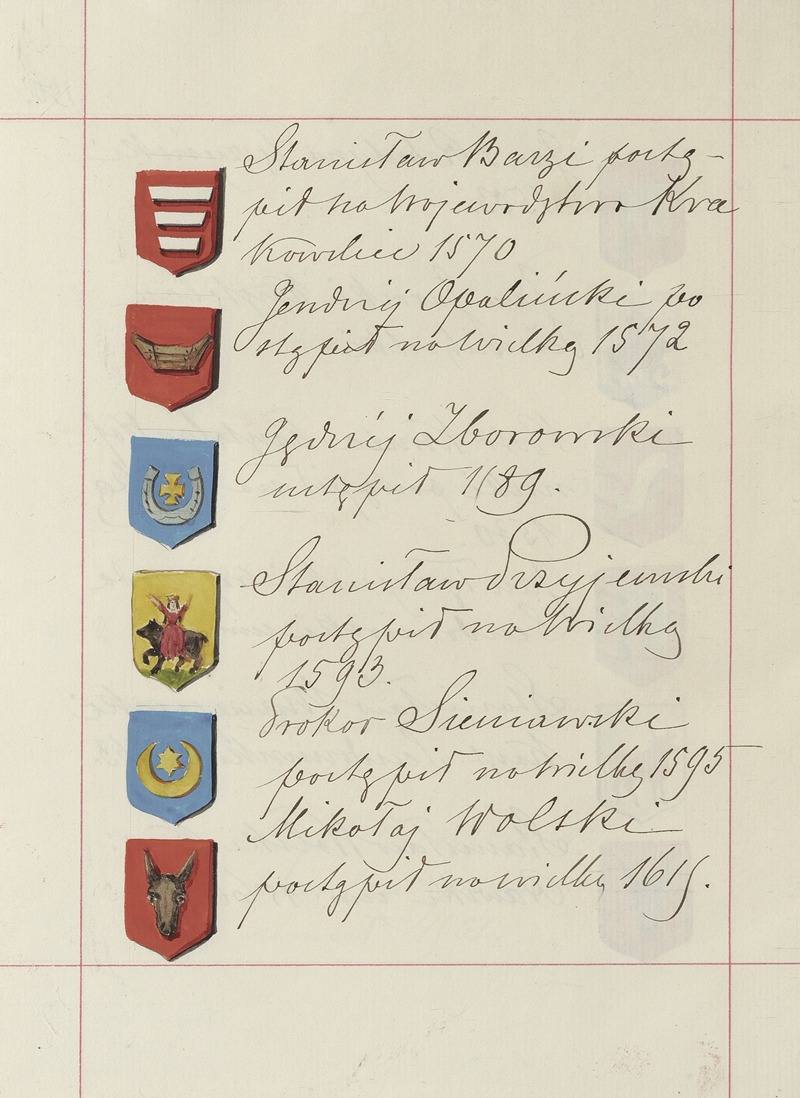 Stanisław Barzi postą-
pił na Wojewodztwo Kra
kowskie 1570
Jendrzij Opaliński po
stąpił na wielką 1572
Jędrzij Zborowski
ustąpił 1589.
Stanisław Przyjemski
postąpił na Wielką
1593.
Prokop Sieniawski
postąpił na wielką 1595
Mikołaj Wolski
postąpił na wielką 1615.